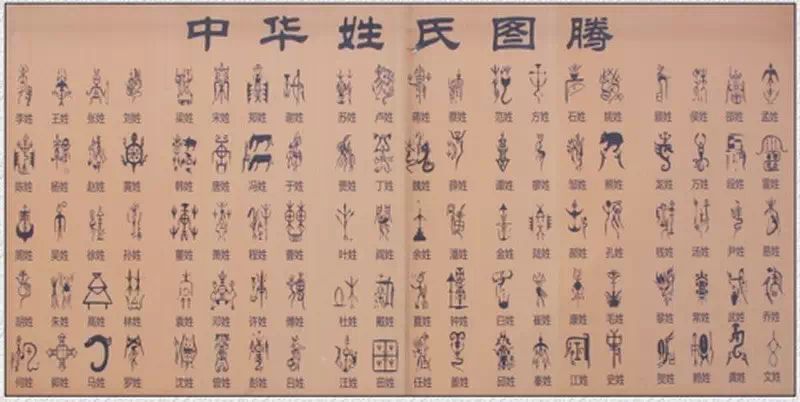 中华姓氏图腾
李姓 王姓 张姓 刘姓 梁姓 宋姓 郑姓 谢姓 苏姓 卢姓 蒋姓 蔡姓 范姓 方姓 石姓 姚姓 顾姓 侯姓 邵姓 孟姓
陈姓 杨姓 赵姓 黄姓 韩姓 唐姓 冯姓 于姓 贾姓 丁姓 魏姓 薛姓 谭姓 廖姓 邹姓 熊姓 龙姓 万姓 段姓 雷姓
周姓 吴姓 徐姓 孙姓 董姓 萧姓 程姓 曹姓 叶姓 阎姓 余姓 潘姓 金姓 陆姓 郝姓 孔姓 钱姓 汤姓 尹姓 易姓
胡姓 朱姓 高姓 林姓 袁姓 邓姓 许姓 傅姓 杜姓 戴姓 夏姓 钟姓 崔姓 康姓 毛姓 黎姓 常姓 武姓 乔姓
何姓 郭姓 马姓 罗姓 沈姓 曾姓 彭姓 吕姓 汪姓 田姓 任姓 姜姓 邱姓 秦姓 江姓 史姓 贺姓 赖姓 龚姓 文姓